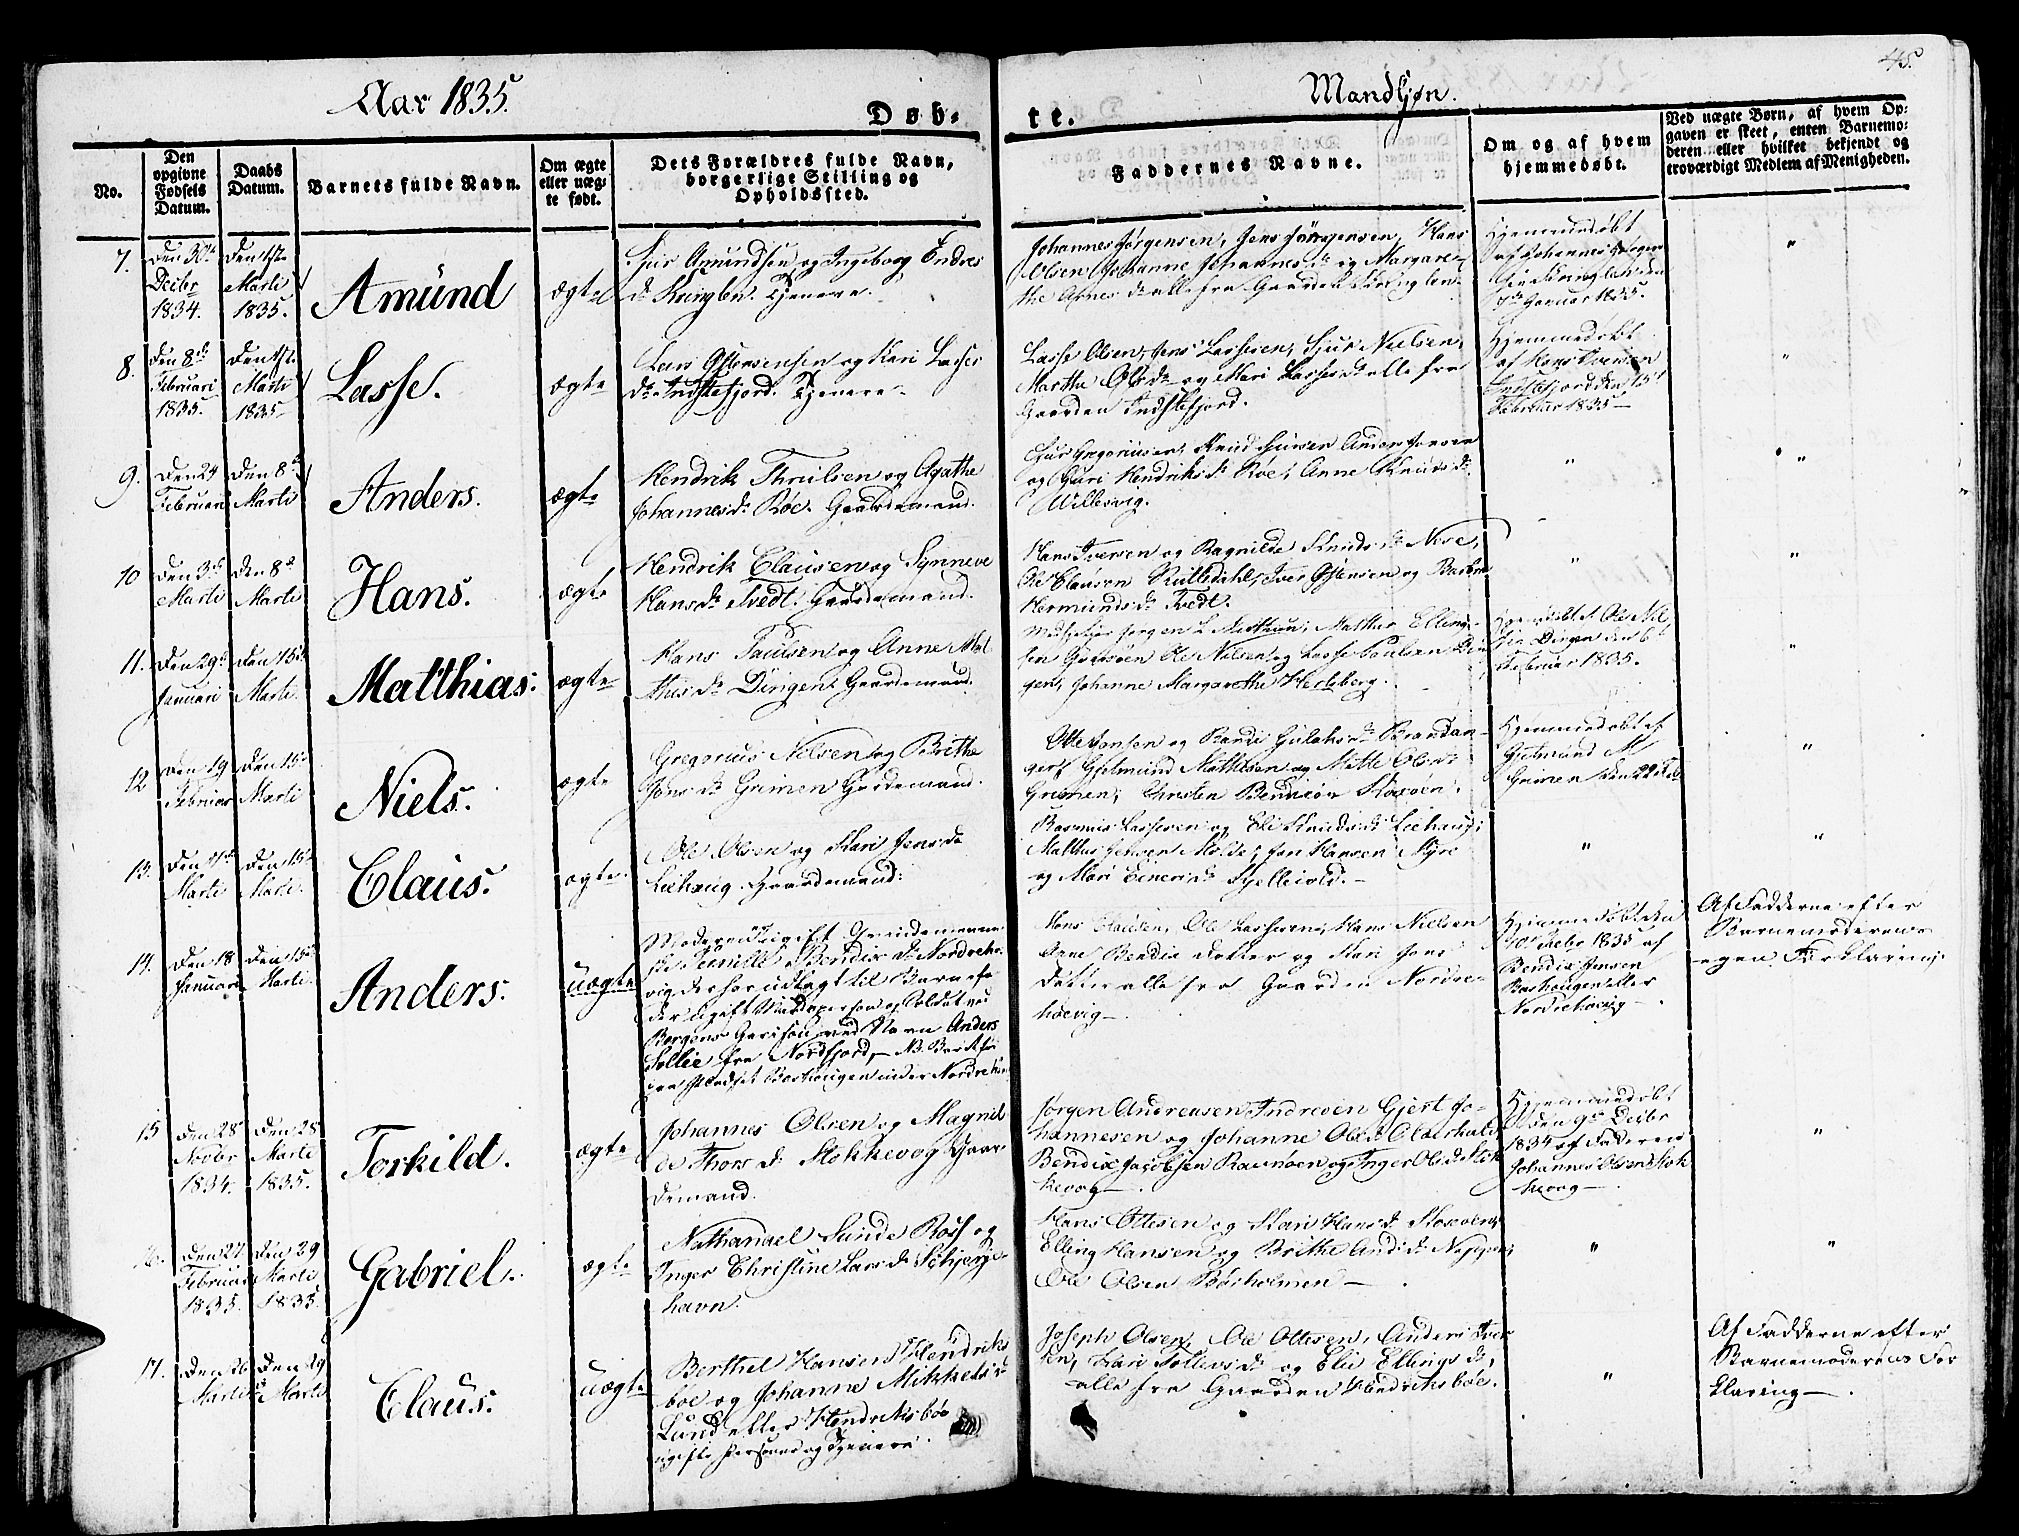 Aar 1835.
Mandkjøn.
45.
Døb-
te.
No.
Den
opgivne
Fødsels
Datum.
Daabs
Datum.
Barnets fulde Navn.
Om ægte
eller uæg-
te født.
Dets Forældres fulde Navn,
borgerlige Stilling og
Opholdssted.
Faddernes Navne.
Om og af hvem
hjemmedøbt.
Ved uægte Børn, af hvem Op-
gaven er skeet, enten Barnemo-
deren eller hvilket bekjendt og
troværdigt Medlem af Menigheden.
7.
Den 30te
Decbr
1834.
Den 1ste
Marti
1835.
Amünd
ægte
Sjur Amundsen og Ingeborg Endres
Dr Tjenere.
Johannes Jørgensen, Jens Jørgensen, Hans
Olsen, Johanne Johannes Dr og Margare-
the Arnes Dr alle fra Gaarden
Hjemmedøbt
af Johannes
Januar 1835.
"
8.
Den 8de
Februari
1835.
Den 1ste
Marti
1835
Lasse.
ægte
Lars Østensen og Kari Lasses
Dr Indstefjord. Tjenere.
Lasse Olsen, Jens Lassesen, Sjur Nielsen,
Marthe Ols Dr og Mari Lasses Dr alle fra
Gaarden Indstefjord.
Hjemmedøbt
af Hans Iversen
Indstefjord den 15
Februar 1835
"
9.
Den 24
Februari
Den 8de
Marti
Anders.
ægte
Hendrik Thrulsen og Agathe
Johannes Dr Røe. Gaardemand.
Sjur Gregoriusen, Knud Sjursen Anders Jansen
og Guri Hendriks Dr Røe, Anne Knuds Dr
Willesvig.
"
"
10
Den 3de
Marti
Den 8de
Marti
Hans.
ægte
Hendrik Clausen og Synneve
Hans Dr Tvedt. Gaardemand.
Hans Iversen og Ragnilde Knuds Dr Nese,
Ole Clausen Rutledahl, Iver Østensen og Barbra
Hermunds Dr Tvedt.
"
"
11.
Den 29de
Januari
Den 15de
Marti
Matthias.
ægte
Hans Paulsen og Anne Mat
thias Dr Dingen. Gaardemand.
Jørgen L Matthias Elling-
sen Ole Nilsen og Lasse Paulsen Din
gen, Johanne Margarethe Hedeberg.
Hjemmedøbt af Ole Nil
sen Dingen den 6
Februar 1835.
"
12
Den 19
Februar
Den 15de
Marti
Niels.
ægte
Gregorius Nilsen og Brithe
Jons Dr Grimen Gardemand.
Otte Jonsen og Randi Gulaks Dr Brandan-
ger, Gjelmund Mathisen og Malle Ols Dr
Grimen, Christen Bendixen Skorøen.
Hjemmedøbt af
Gjelmund M
Grimen den 22 Feb
"
13.
Den 1ste
Marti
Den 15de
Marti
Claus.
ægte.
Ole Olsen og Kari Jens Dr
Liehaug. Gaardemand.
Rasmus Lassesen og Eli Knuds Dr Liehaug;
Matthis Jensen Molde, Jon Hansen Myre
og Mari Einers Dr Hjellevold.
"
"
14.
Den 18
Januari
Den 15de
Marti
Anders.
uægte
Moderen ugift
Pernille Bendix Dr Nordreho-
vig der har udlagt til Barnefa-
der ugift og Soldat ved
Bergens Garnison ved Navn Anders
Sollie fra Nordfjord,
Pladset Barhougen under Nordreho
Mons Clausen, Ole Lassesen, Hans Nielsen
Anne Bendix Datter og Kari Jens
Datter alle fra Gaarden Nordre-
hoevig
Hjemme døbt den
Febr 1835 af
Bendix Jensen
Barhougen eller
Nordrehovig
Af Fadderne efter
Barnemoderens
egen Forklaring.
15
Den 28
Novbr
1834.
Den 28
Marti
1835.
Torkild.
ægte
Johannes Olsen og Magnil
de Thors Dr Stokkevog Gaar-
demand.
Jørgen Andreasen Indreøen Gjert Jo-
hannesen og Johanne Ols Dr
Bendix Jacobsen Raunøen og Inger Ols Dr Stok
kevog
Hjemmedøbt
den 9de Decbr
1834 af Faderen
Johannes Olsen Stok
kevog
"
16.
Den 27
Februar
1835.
Den 29
Marti
1835.
Gabriel.
ægte
Nathanael Sunde Rosf og
Inger Christine Lars Dr Schjerje-
havn.
Hans Ottesen og Kari Hans Dr Skorøens
Elling Hansen og Brithe Ands Dr Noseppen
Ole Olsen Børholmen
"
"
17.
Den 26
Marti
Den 29
Marti
Claus.
uægte
Berthel Hansen Hendriks
boe og Johanne Mikkels Dr
Lund eller Hendriksboe
ugifte Personer og Tjenere.
Joseph Olsen, Ole Ottesen, Anders Iver
sen, Kari Tollevs Dr og Elie Ellings Dr,
alle fra Gaarden Hendriksboe.
"
Af Fadderne efter
Barnemoderens For
klaring.